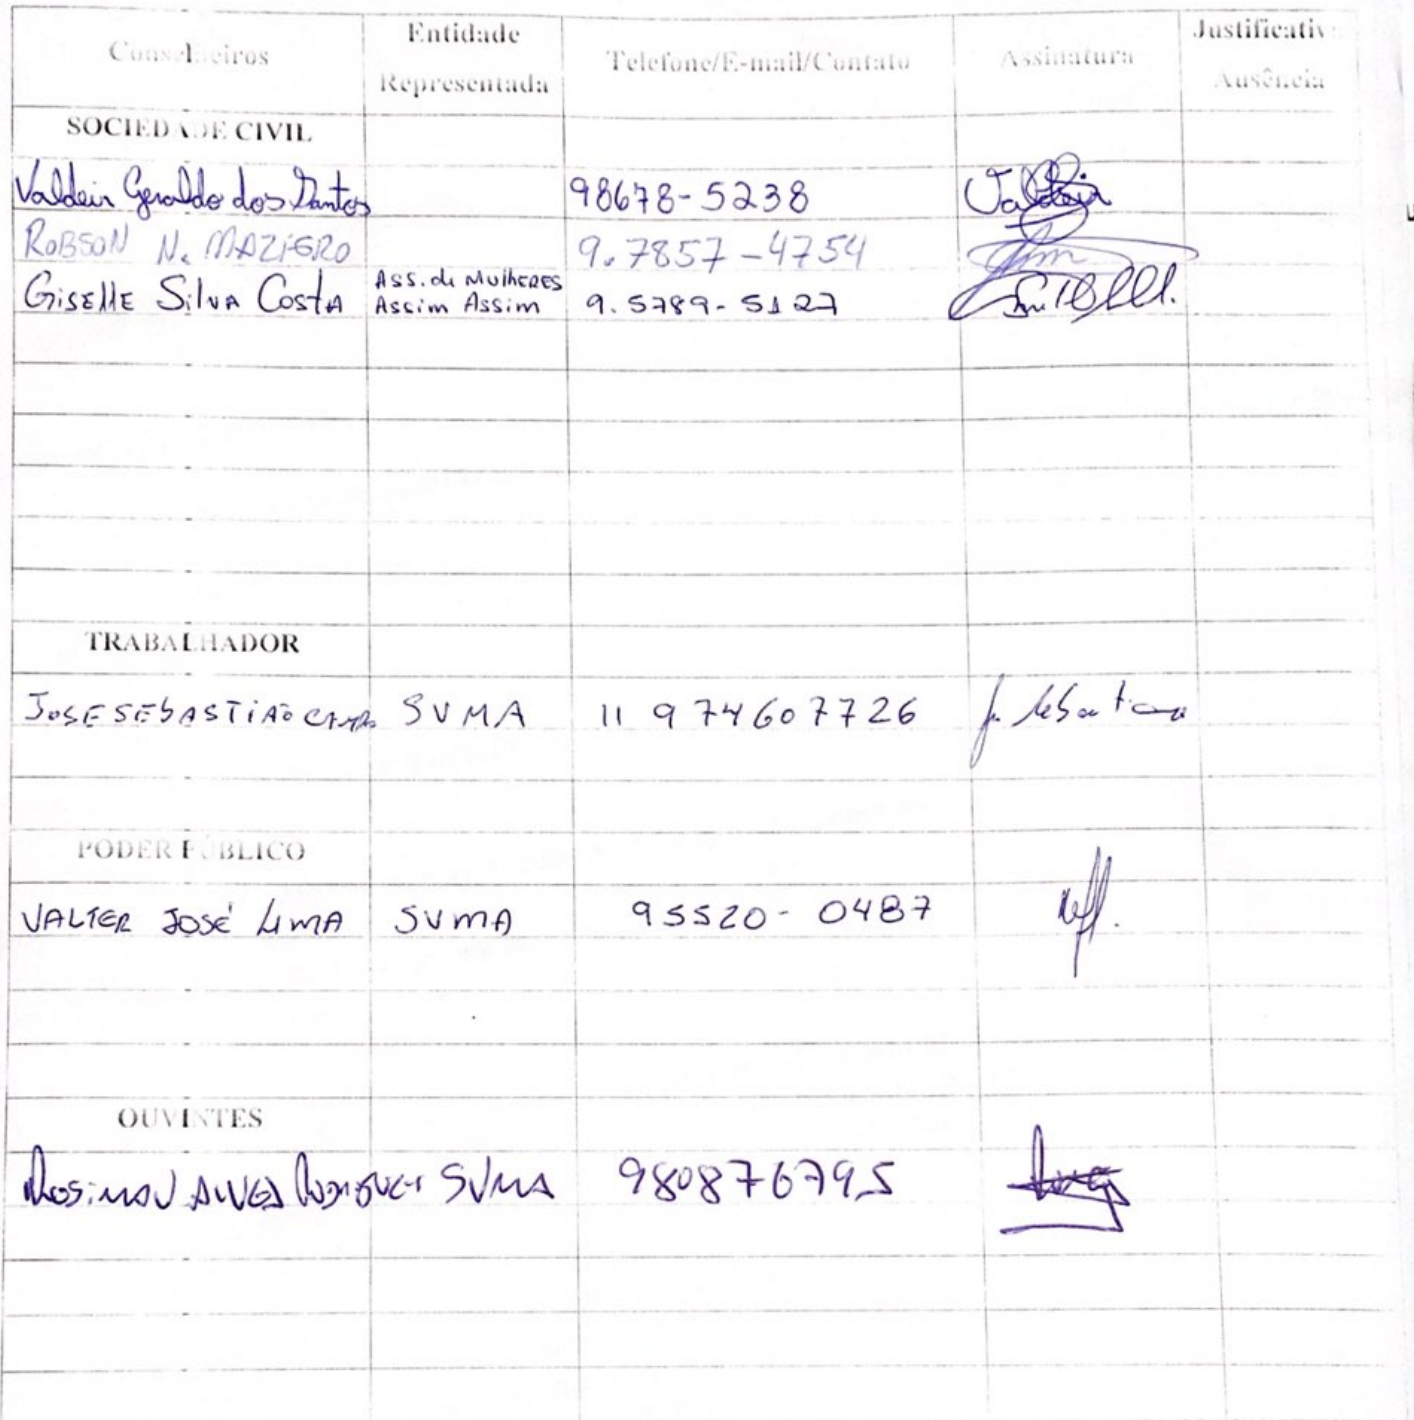 Conselheiros Entidade Representada Telefone/E-mail/Contato Assinatura Justificativa Ausência
SOCIEDADE CIVIL
Valdeir Geraldo dos Santos 98678-5238 Valdeir
ROBSON N. MAZIERO 9.7857-4754
GISELLE SILVA COSTA Ass. de Mulheres Assim Assim 9.5789-5127
TRABALHADOR
JOSE SEBASTIÃO SVMA 11 974607726
PODER PÚBLICO
VALTER JOSÉ LIMA SVMA 95520-0487
OUVINTES
ALVES SVMA 980876795